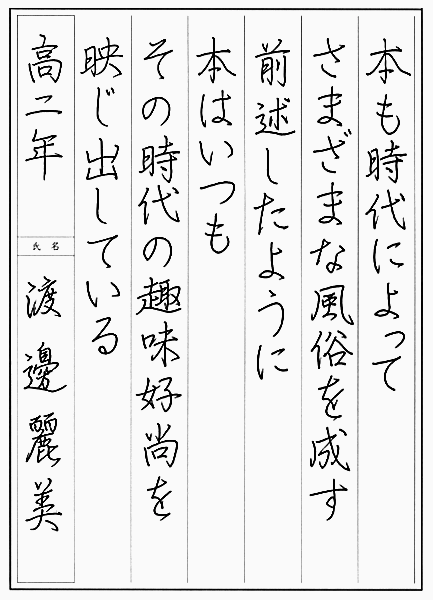 本も時代によって
さまざまな風俗を成す
前述したように
本はいつも
その時代の趣味好尚を
映じ出している
高二年
氏名
渡邊麗美